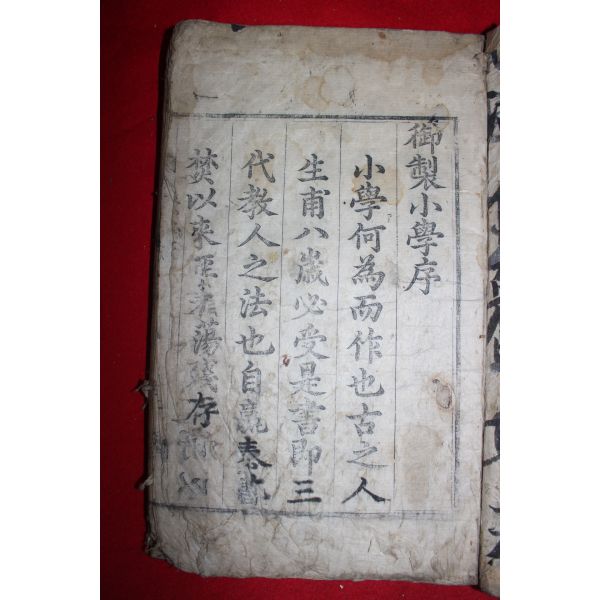 御製小學序
小學何為而作也古之人
生甫八歲必受是書即三
代教人之法也自嬴秦
焚以來經籍蕩殘存